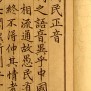 民正音
之語音異乎中國
相流通故愚民有
終不得伸其情者